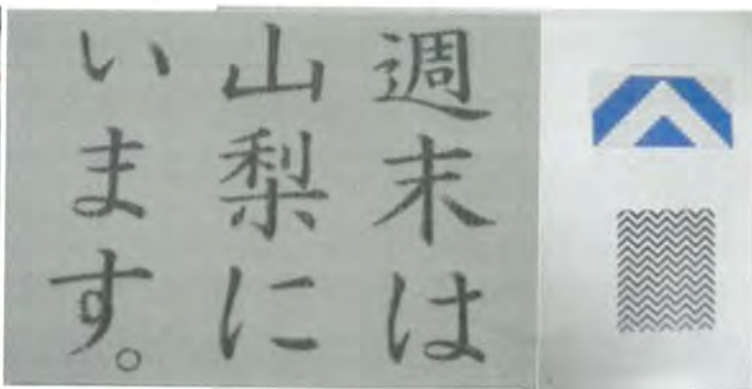 週末は
山梨に
います。